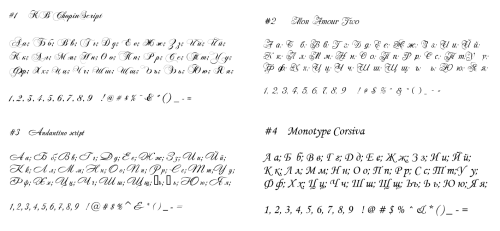 #1 K.B. Chopin Script
А а; Б б; В в; Г г; Д д; Е е; Ж ж; З з; И и; Й й;
К к; Л л; М м; Н н; О о; П п; Р р; С с; Т т; У у;
Ф ф; Х х; Ц ц; Ч ч; Ш ш; Щ щ; Ъ ъ; Ь ь; Ю ю; Я я;
1, 2, 3, 4, 5, 6, 7, 8, 9 ! @ # $ % ^ & * ( ) _ - =
#2 Mon Amour Two
А а; Б б; В в; Г г; Д д; Е е; Ж ж; З з; И и; Й й;
К к; Л л; М м; Н н; О о; П п; Р р; С с; Т т; У у;
Ф ф; Х х; Ц ц; Ч ч; Ш ш; Щ щ; ъ; ь; Ю ю; Я я;
1, 2, 3, 4, 5, 6, 7, 8, 9 ! # $ % ^ & * ( ) _ - =
#3 Andantino script
А а; Б б; В в; Г г; Д д; Е е; Ж ж; З з; И и; Й й;
К к; Л л; М м; Н н; О о; П п; Р р; С с; Т т; У у;
Ф ф; Х х; Ц ц; Ч ч; Ш ш; Щ щ; ъ; ь; Ю ю; Я я;
1, 2, 3, 4, 5, 6, 7, 8, 9 ! @ # $ % ^ & * ( ) _ - =
#4 Monotype Corsiva
А а; Б б; В в; Г г; Д д; Е е; Ж ж; З з; И и; Й й;
К к; Л л; М м; Н н; О о; П п; Р р; С с; Т т; У у;
Ф ф; Х х; Ц ц; Ч ч; Ш ш; Щ щ; Ъ ъ; Ь ь; Ю ю; Я я;
1, 2, 3, 4, 5, 6, 7, 8, 9 ! @ # $ % ^ & * ( ) _ - =